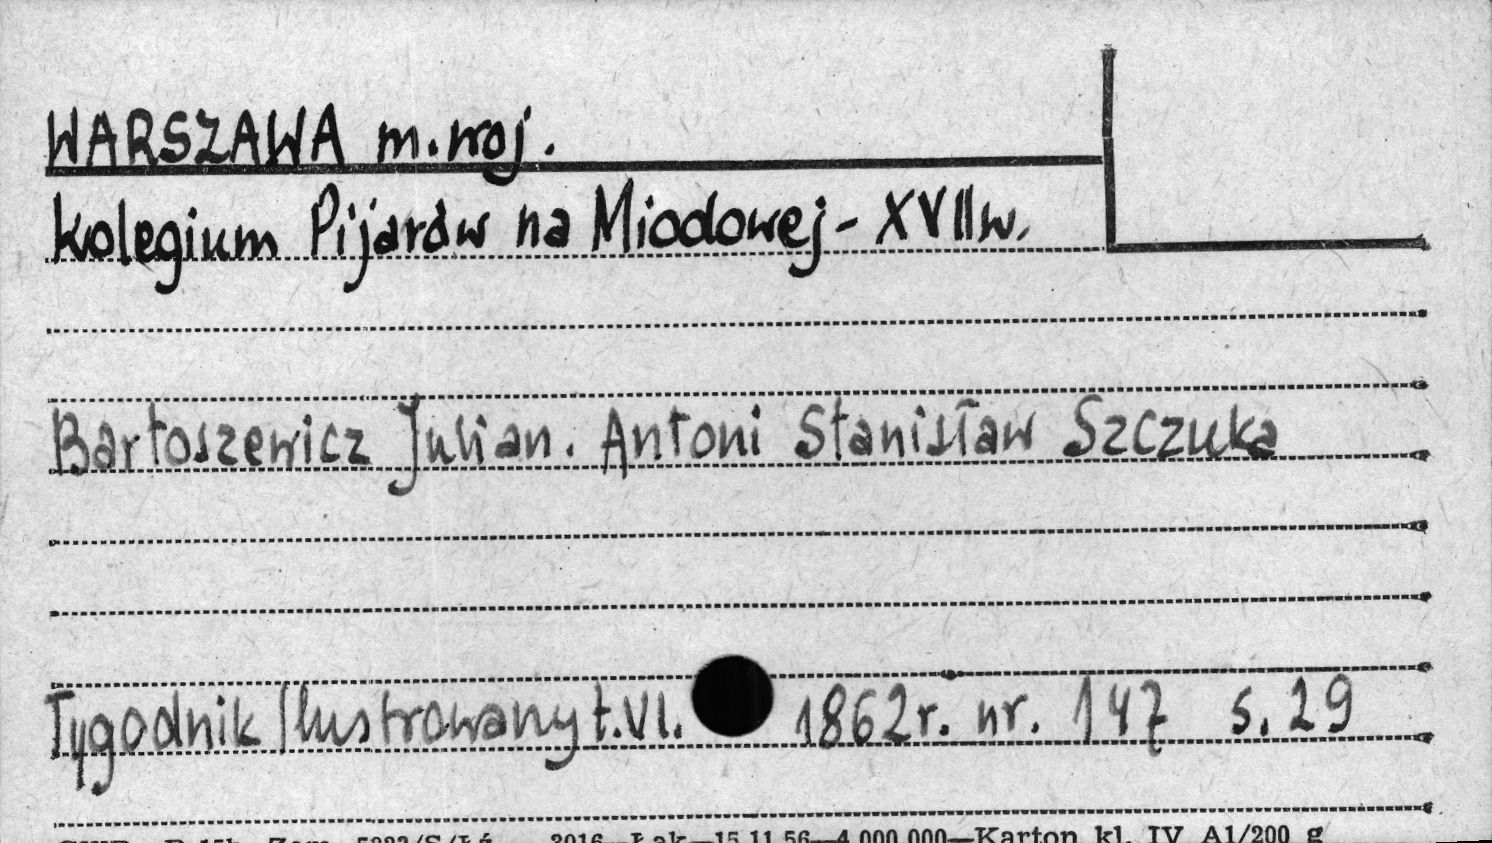 WARSZAWA m.woj.
Kolegium Pijarów na Miodowej - XVIIw.
Bartoszewicz Julian. Antoni Stanisław Szczuka
Tygodnik Ilustrowany t.VI. 1862r. nr. 147 s. 29
2016 Łak—15.11.56—4.000.000—Karton kl. IV A1/200 g